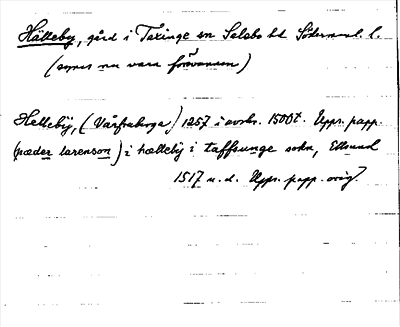 Hälleby, gård i Taxinge sn Selebo hd Söderманl. l.
(synes nu vara försvunnen)
Helleby, (Vårfrukyrka) 1257 i avskr. 1500t. Upps. papp.
(pæder larenson) i hælleby i taffsunge sokn, Ellsund
1517 u.d. Upps. papp. orig.